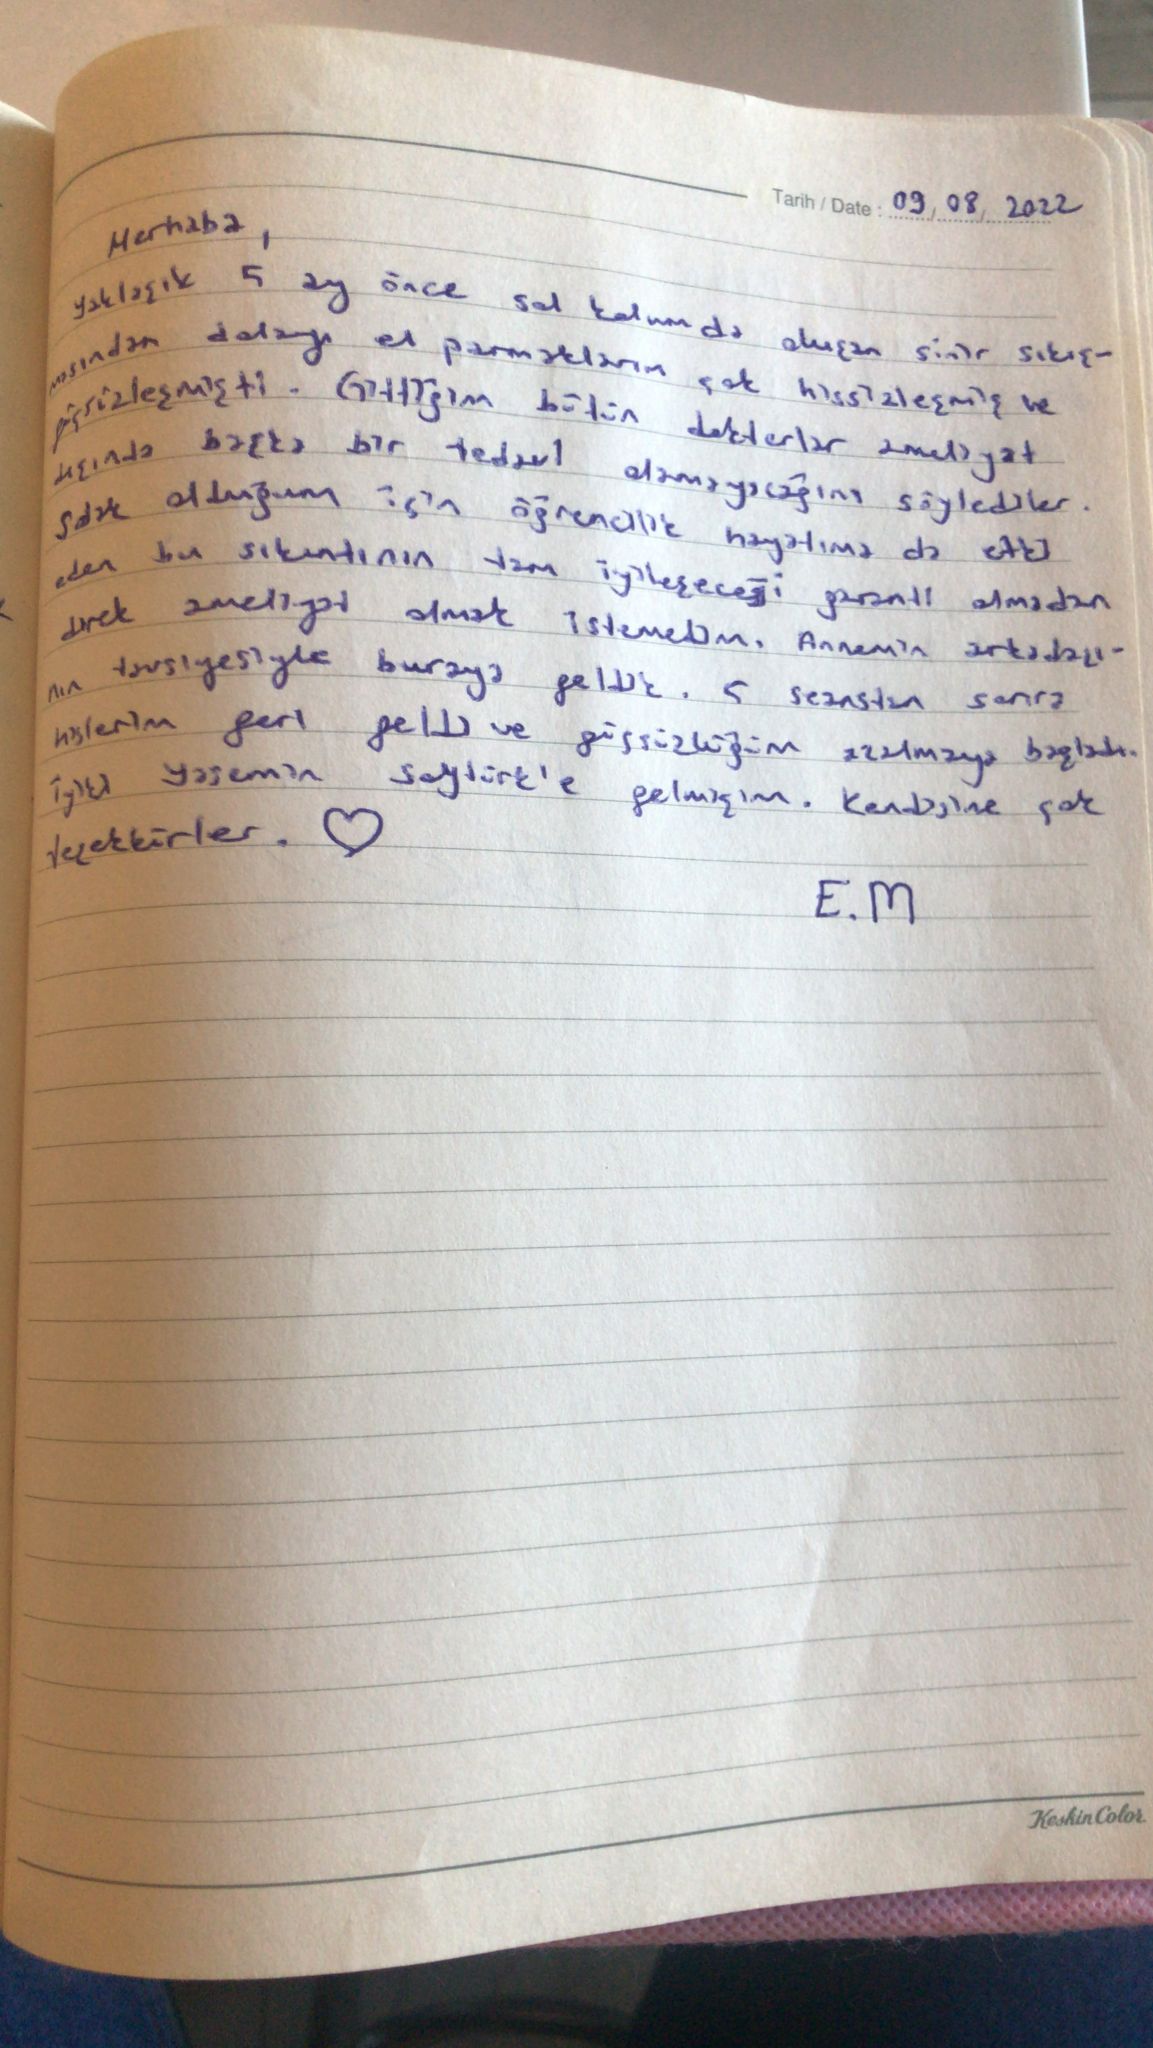 Tarih / Date : 09, 08, 2022
Merhaba,
yaklaşık 5 ay önce sol kolumda oluşan sinir sıkış-
masından dolayı el parmakların çok hissizleşmiş ve
güçsüzleşmişti. Gittiğim bütün doktorlar ameliyat
dışında başka bir tedavi olamayacağını söylediler.
olduğum için öğrencilik hayatıma da etki
eden bu sıkıntının tam iyileşeceği garanti olmadan
direk ameliyat olmak istemedim. Annemin arkadaşı-
nın tavsiyesiyle buraya geldik. 5 seanstan sonra
hislerim geri geldi ve güçsüzlüğüm azalmaya başladı.
iyiki Yasemin Soytürk'e gelmişim. Kendisine çok
teşekkürler. ♡
E.M
KeskinColor